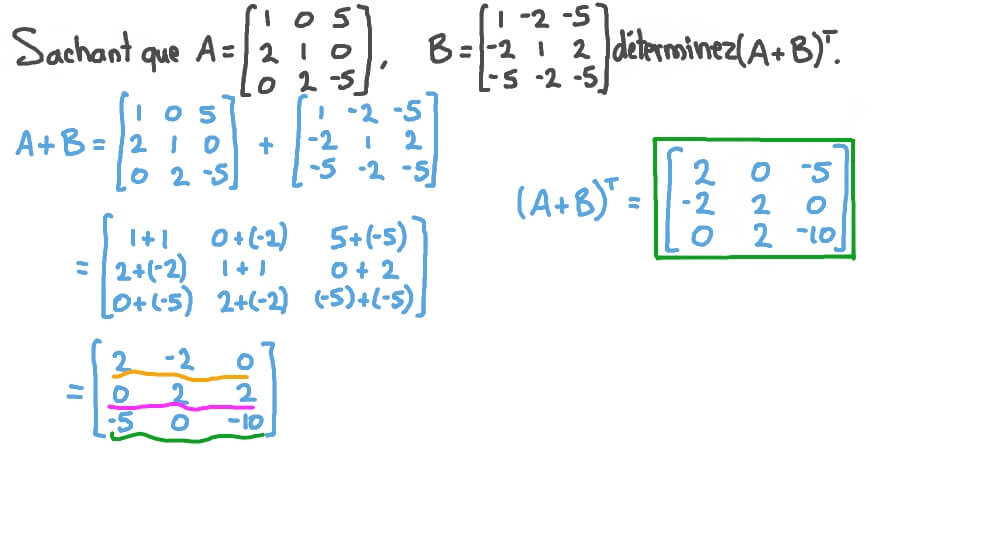 Sachant que A = [1 0 5; 2 1 0; 0 2 -5], B = [1 -2 -5; -2 1 2; -5 -2 -5] déterminez (A+B)ᵀ.
A+B = [1 0 5; 2 1 0; 0 2 -5] + [1 -2 -5; -2 1 2; -5 -2 -5]
= [1+1 0+(-2) 5+(-5); 2+(-2) 1+1 0+2; 0+(-5) 2+(-2) (-5)+(-5)]
= [2 -2 0; 0 2 2; -5 0 -10]
(A+B)ᵀ = [2 0 -5; -2 2 0; 0 2 -10]